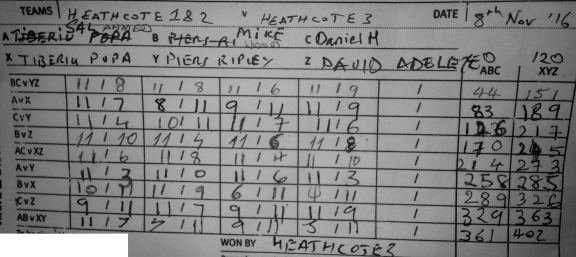 TEAMS HEATHCOTE 1 & 2 V HEATHCOTE 3 DATE 8th Nov '16
A TIBERIU PUPA SAL AHMED B PIERS R MIKE WOOD C Daniel M
X TIBERIU PUPA Y PIERS RIPLEY Z DAVID ADELEYE 0 120
ABC XYZ
BCvYZ 11 / 8 11 / 8 11 / 6 11 / 9 / 44 151
AvX 11 / 7 8 / 11 9 / 11 11 / 9 / 83 189
CvY 11 / 4 10 / 11 11 / 7 11 / 6 / 126 217
BvZ 11 / 10 11 / 4 11 / 6 11 / 8 / 170 245
ACvXZ 11 / 6 11 / 8 11 / 4 11 / 10 / 214 273
AvY 11 / 2 11 / 0 11 / 6 11 / 3 / 258 285
BvX 10 / 11 11 / 9 6 / 11 4 / 11 / 289 326
CvZ 9 / 11 11 / 7 9 / 11 11 / 9 / 329 363
ABvXY 11 / 7 7 / 11 9 / 11 5 / 11 / 361 402
WON BY HEATHCOTE 3